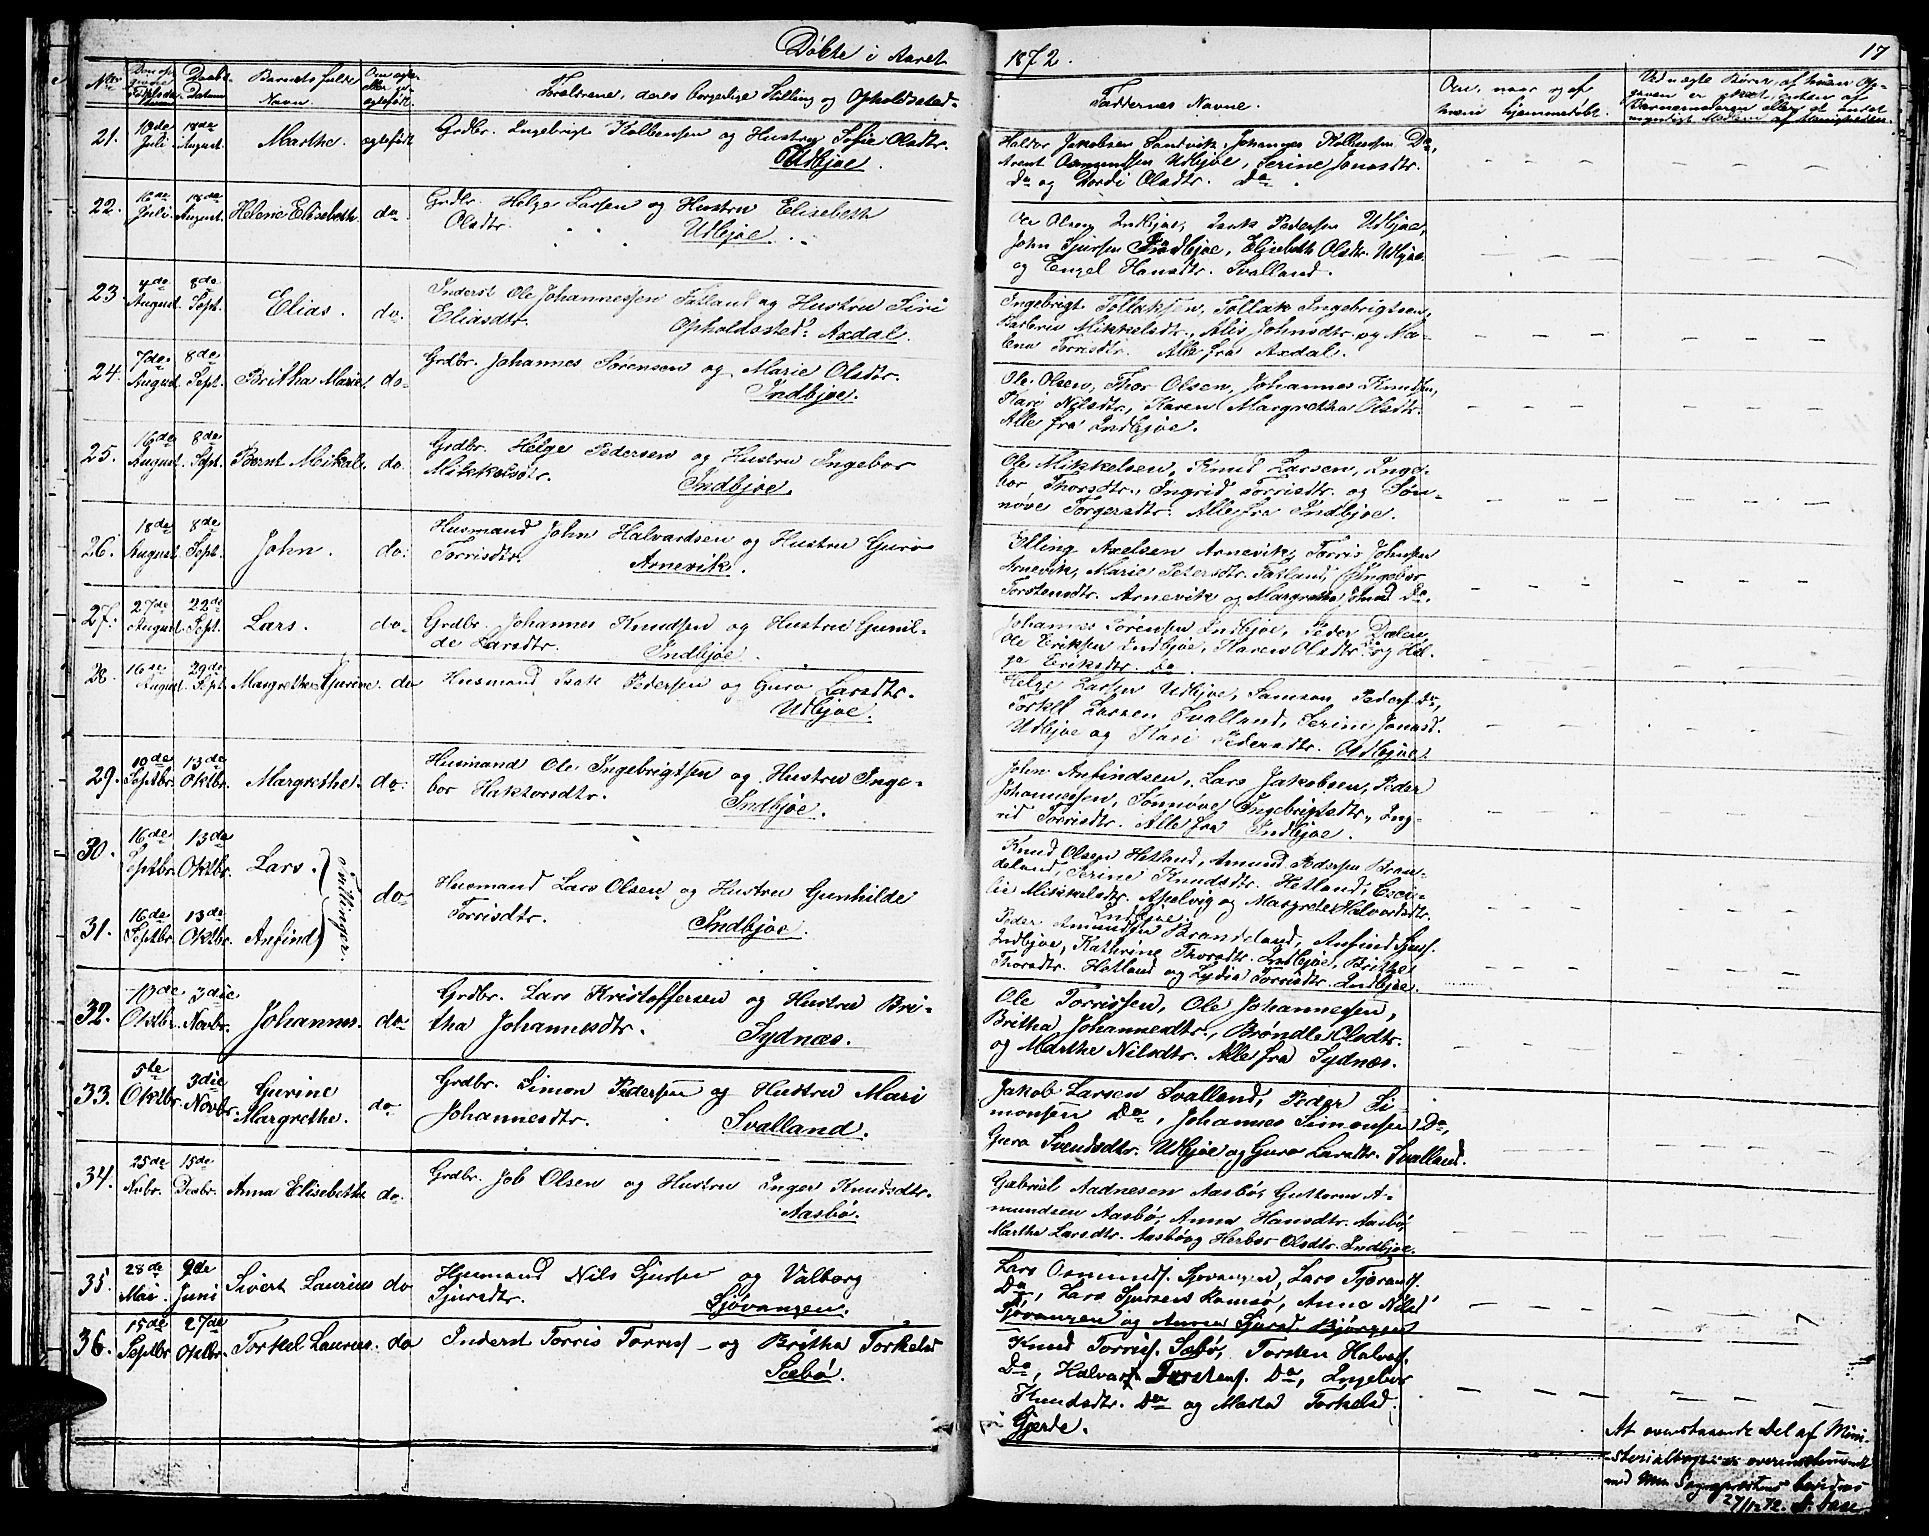 Döbte i Aaret
1872.
17
No
Daabs-
Datum
Barnets fulde
Navn.
Forældrene, deres borgerlige Stilling og Opholdssted
Faddernes Navne.
Om, naar og af
hvem hjemmedøbt.
21. 19de Juli 18de August. Marthe. ægtefødt Grdbr. Ingebrigt Kolbensen og Hustru Sofie Olsdtr.
Udbjoe.
Haldor Jakobsen Sandvik, Johannes Kolbensen Do,
Arent Osmundsen Udbjoe, Serine Jonasdtr.
Do og Dordi Olsdtr. Do.
22. 16de Juli 18de August. Helene Elisabeth. do. Grdbr. Helge Larsen og Hustru Elisabeth
Olsdtr. Udbjoe.
Ole Olsen Indbjoe, Isak Pedersen Udbjoe,
John Sjursen Indbjoe, Elisabeth Olsdtr. Udbjoe
og Engel Hansdtr. Svalland.
23. 4de August. 8de Sept. Elias. do. Inderst Ole Johannessen Fatland og Hustru Siri
Eliasdtr. Opholdssted: Axdal.
Ingebrigt Tollaksen, Tollak Ingebrigtsen,
Barbru Mikkelsdtr., Alis Johnsdtr. og Ma-
lene Torrisdtr. Alle fra Axdal.
24. 7de August. 8de Sept. Britha Marie. do. Grdbr. Johannes Sørensen og Marie Olsdtr.
Indbjoe.
Ole Olsen, Thor Olsen, Johannes Knudsen,
Kari Nilsdtr., Karen Margretha Olsdtr.
Alle fra Indbjoe.
25. 16de August. 8de Sept. Bernt Meikal. do. Grdbr. Helge Pedersen og Hustru Ingebor
Mikkelsdtr. Indbjoe.
Ole Mikkelsen, Knud Larsen, Inge-
bor Thorsdtr., Ingrid Torrisdtr. og Søn-
nøve Torgersdtr. Alle fra Indbjoe.
26. 18de August. 8de Sept. John. do. Husmand John Halvardsen og Hustru Guro
Torrisdtr. Arnevik.
Elling Axelsen Arnevik, Torris Johnsen
Arnevik, Marie Petersdtr. Fatland, Ingebor
Torstensdtr. Arnevik og Margretha Johnsd Do.
27. 27de August. 22de Sept. Lars. do. Grdbr. Johannes Knudsen og Hustru Gunil-
de Larsdtr. Indbjoe.
Johannes Sørensen Indbjoe, Peder Dalen,
Ole Eriksen Indbjoe, Karen Olsdtr. og Hel-
ga Eriksdtr. Do
28. 16de August 29de Sept. Margrethe Sjurine. do Husmand Isak Pedersen og Guro Larsdtr.
Udbjoe.
Helge Larsen Udbjoe, Samson Peders. Do,
Torkel Larsen Svalland, Serine Jonasd.
Udbjoe og Kari Pedersdtr. Udbjoe.
29. 10de Septbr. 13de Oktbr. Margrethe. do. Husmand Ole Ingebrigtsen og Hustru Inge-
bor Haktorsdtr. Indbjoe.
John Anfindsen, Lars Jakobsen, Peder
Johannessen, Sønnøve Ingebrigtsdtr., Ing-
rid Torrisdtr. Alle fra Indbjoe.
30. 16de Septbr. 13de Oktbr. Lars.
Tvillinger.
do. Husmand Lars Olsen og Hustru Gunhilde
Torrisdtr. Indbjoe.
Knud Olsen Hetland, Amund Pedersen Bran-
deland, Serine Knudsdtr. Hetland, Ceci-
lie Mikkelsdtr. Apelvig og Margrete Halvardsdtr.
Indbjoe.
31. 16de Septbr. 13de Oktbr. Anfind
Peder Amundsen Brandeland, Anfind Sjurs.
Indbjoe, Kathrine Thorsdtr. Indbjoe, Brithe
Thorsdtr. Hetland og Lydia Torrisdtr. Indbjoe.
32. 10de Oktbr. 3die Novbr. Johannes. do. Grdbr. Lars Kristoffersen og Hustru Bri-
tha Johannesdtr. Sydnæs.
Ole Torrissen, Ole Johannessen,
Britha Johannesdtr., Brøndle Olsdtr.
og Marthe Nilsdtr. Alle fra Sydnæs.
33. 5te Oktbr. 3die Novbr. Gurine
Margrethe. do. Grdbr. Simon Pedersen og Hustru Mari
Johannesdtr. Svalland.
Jakob Larsen Svalland, Peder Si-
monsen Do, Johannes Simonsen Do,
Guro Svendsdtr. Udbjoe og Guro Larsdtr. Svalland.
34. 25de Nvbr. 15de Decbr. Anna Elisebeth. do. Grdbr. Job Olsen og Hustru Inger Knudsdtr.
Aasbø.
Gabriel Aadnesen Aasbø, Guttorm A-
mundsen Aasbø, Anna Hansdtr. Aasbø,
Marthe Larsdtr. Aasbø og Herbor Olsdtr. Indbjoe.
35. 28de Mai. 9de Juni Sivert Laurius do Husmand Nils Sjursen og Valborg
Sjursdtr. Sjovangen.
Lars Osmunds. Sjovangen, Lars Tjerands.
Do, Lars Sjursens Ramsø, Anna Nilsd
Sjovangen og Anna Sjursd Bjørgen
36. 15de Septbr. 27de Oktbr. Torkel Laurius. do Inderst Torris Torris. og Britha Torkelsd
Sæbø.
Knud Torris. Sæbø, Torsten Halvors.
Do, Halvar Torstens. Do, Ingebor
Knudsdtr. Do og Marta Torkelsd.
Gjerde.
At ovenstaaende Del af Mini-
sterialbogen er overensstemmende
med Sognepræstens bevidnes
27/12 72.